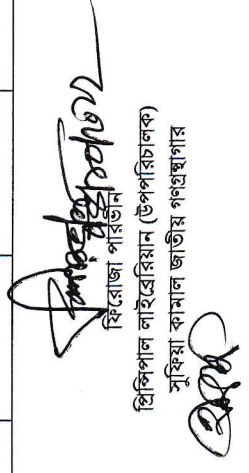 ফিরোজা পারভীন
প্রিন্সিপাল লাইব্রেরিয়ান (উপপরিচালক)
সুফিয়া কামাল জাতীয় গণগ্রন্থাগার